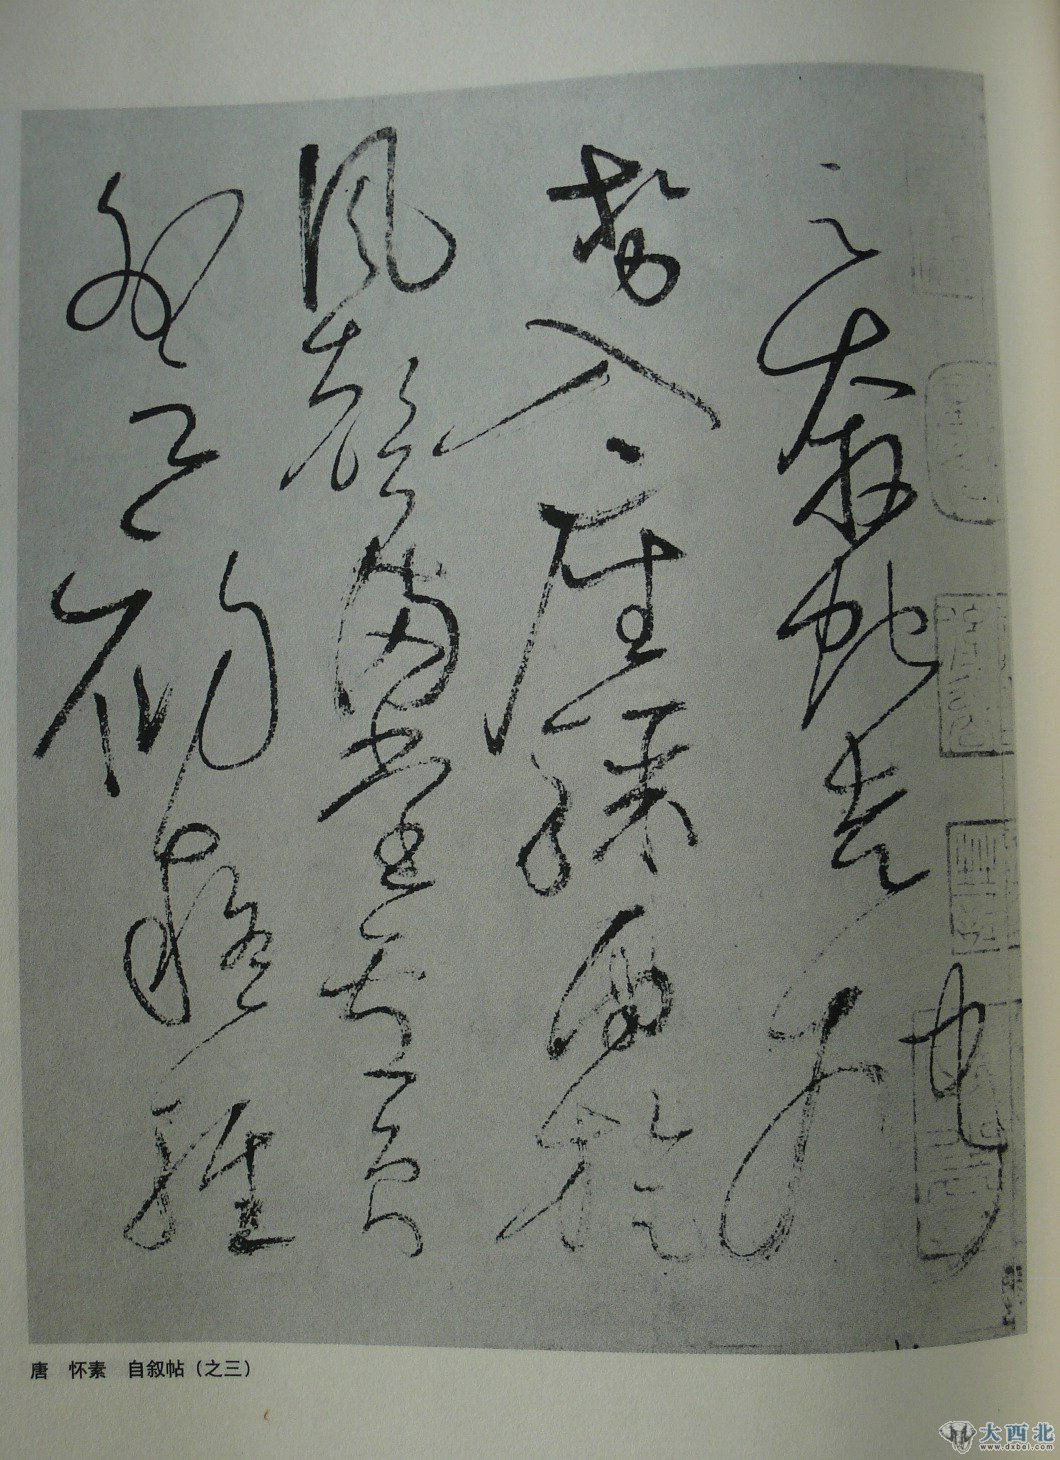 云奔蛇走虺
勢入座驟雨旋
風聲滿堂盧員
外云初疑輕
唐 怀素 自叙帖（之三）
大西北
www.dxbei.com